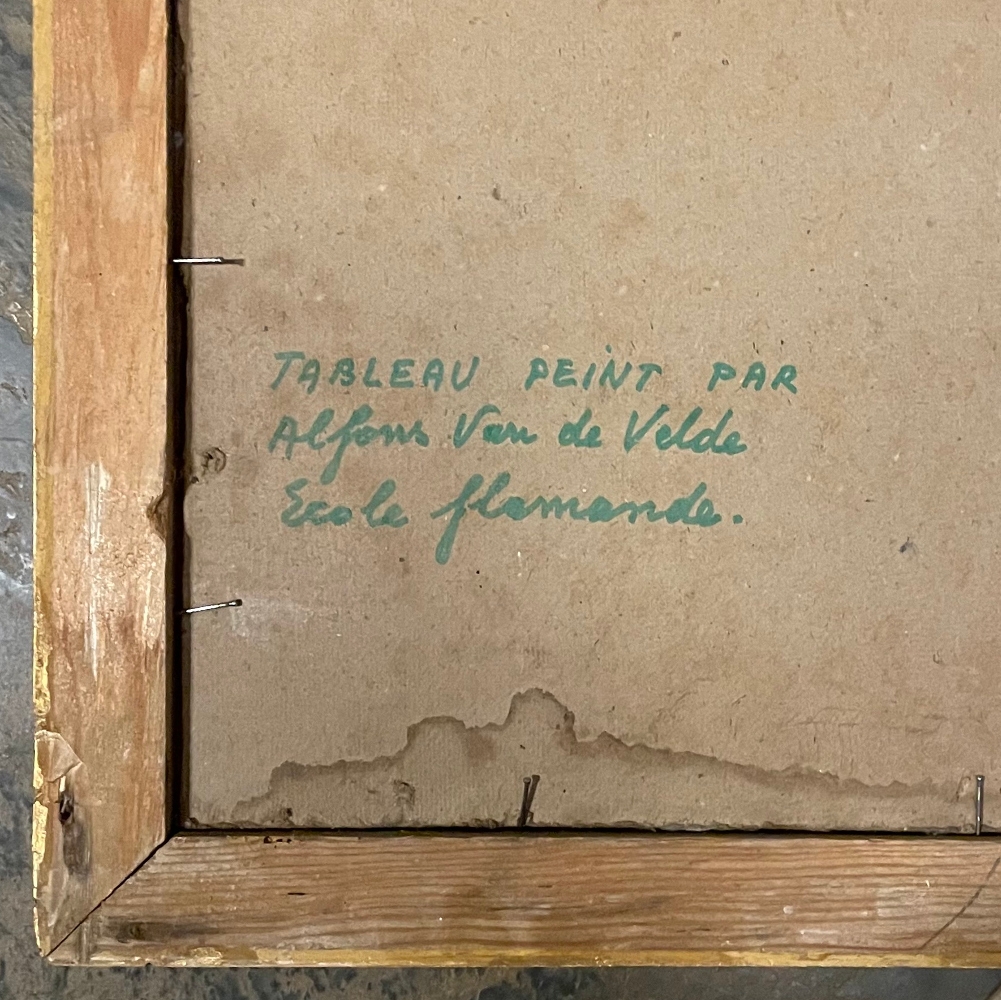 TABLEAU PEiNT PAR
Alfons Van de Velde
Ecole flamande.